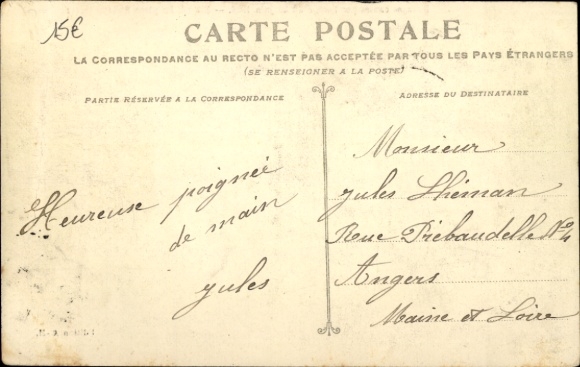 15€
CARTE POSTALE
LA CORRESPONDANCE AU RECTO N'EST PAS ACCEPTÉE PAR TOUS LES PAYS ÉTRANGERS
(SE RENSEIGNER A LA POSTE)
PARTIE RÉSERVÉE A LA CORRESPONDANCE
Heureuse poignée
de main
Jules
ADRESSE DU DESTINATAIRE
Monsieur
Jules Lhéman
Rue Piébaudelle No 4
Angers
Maine et Loire